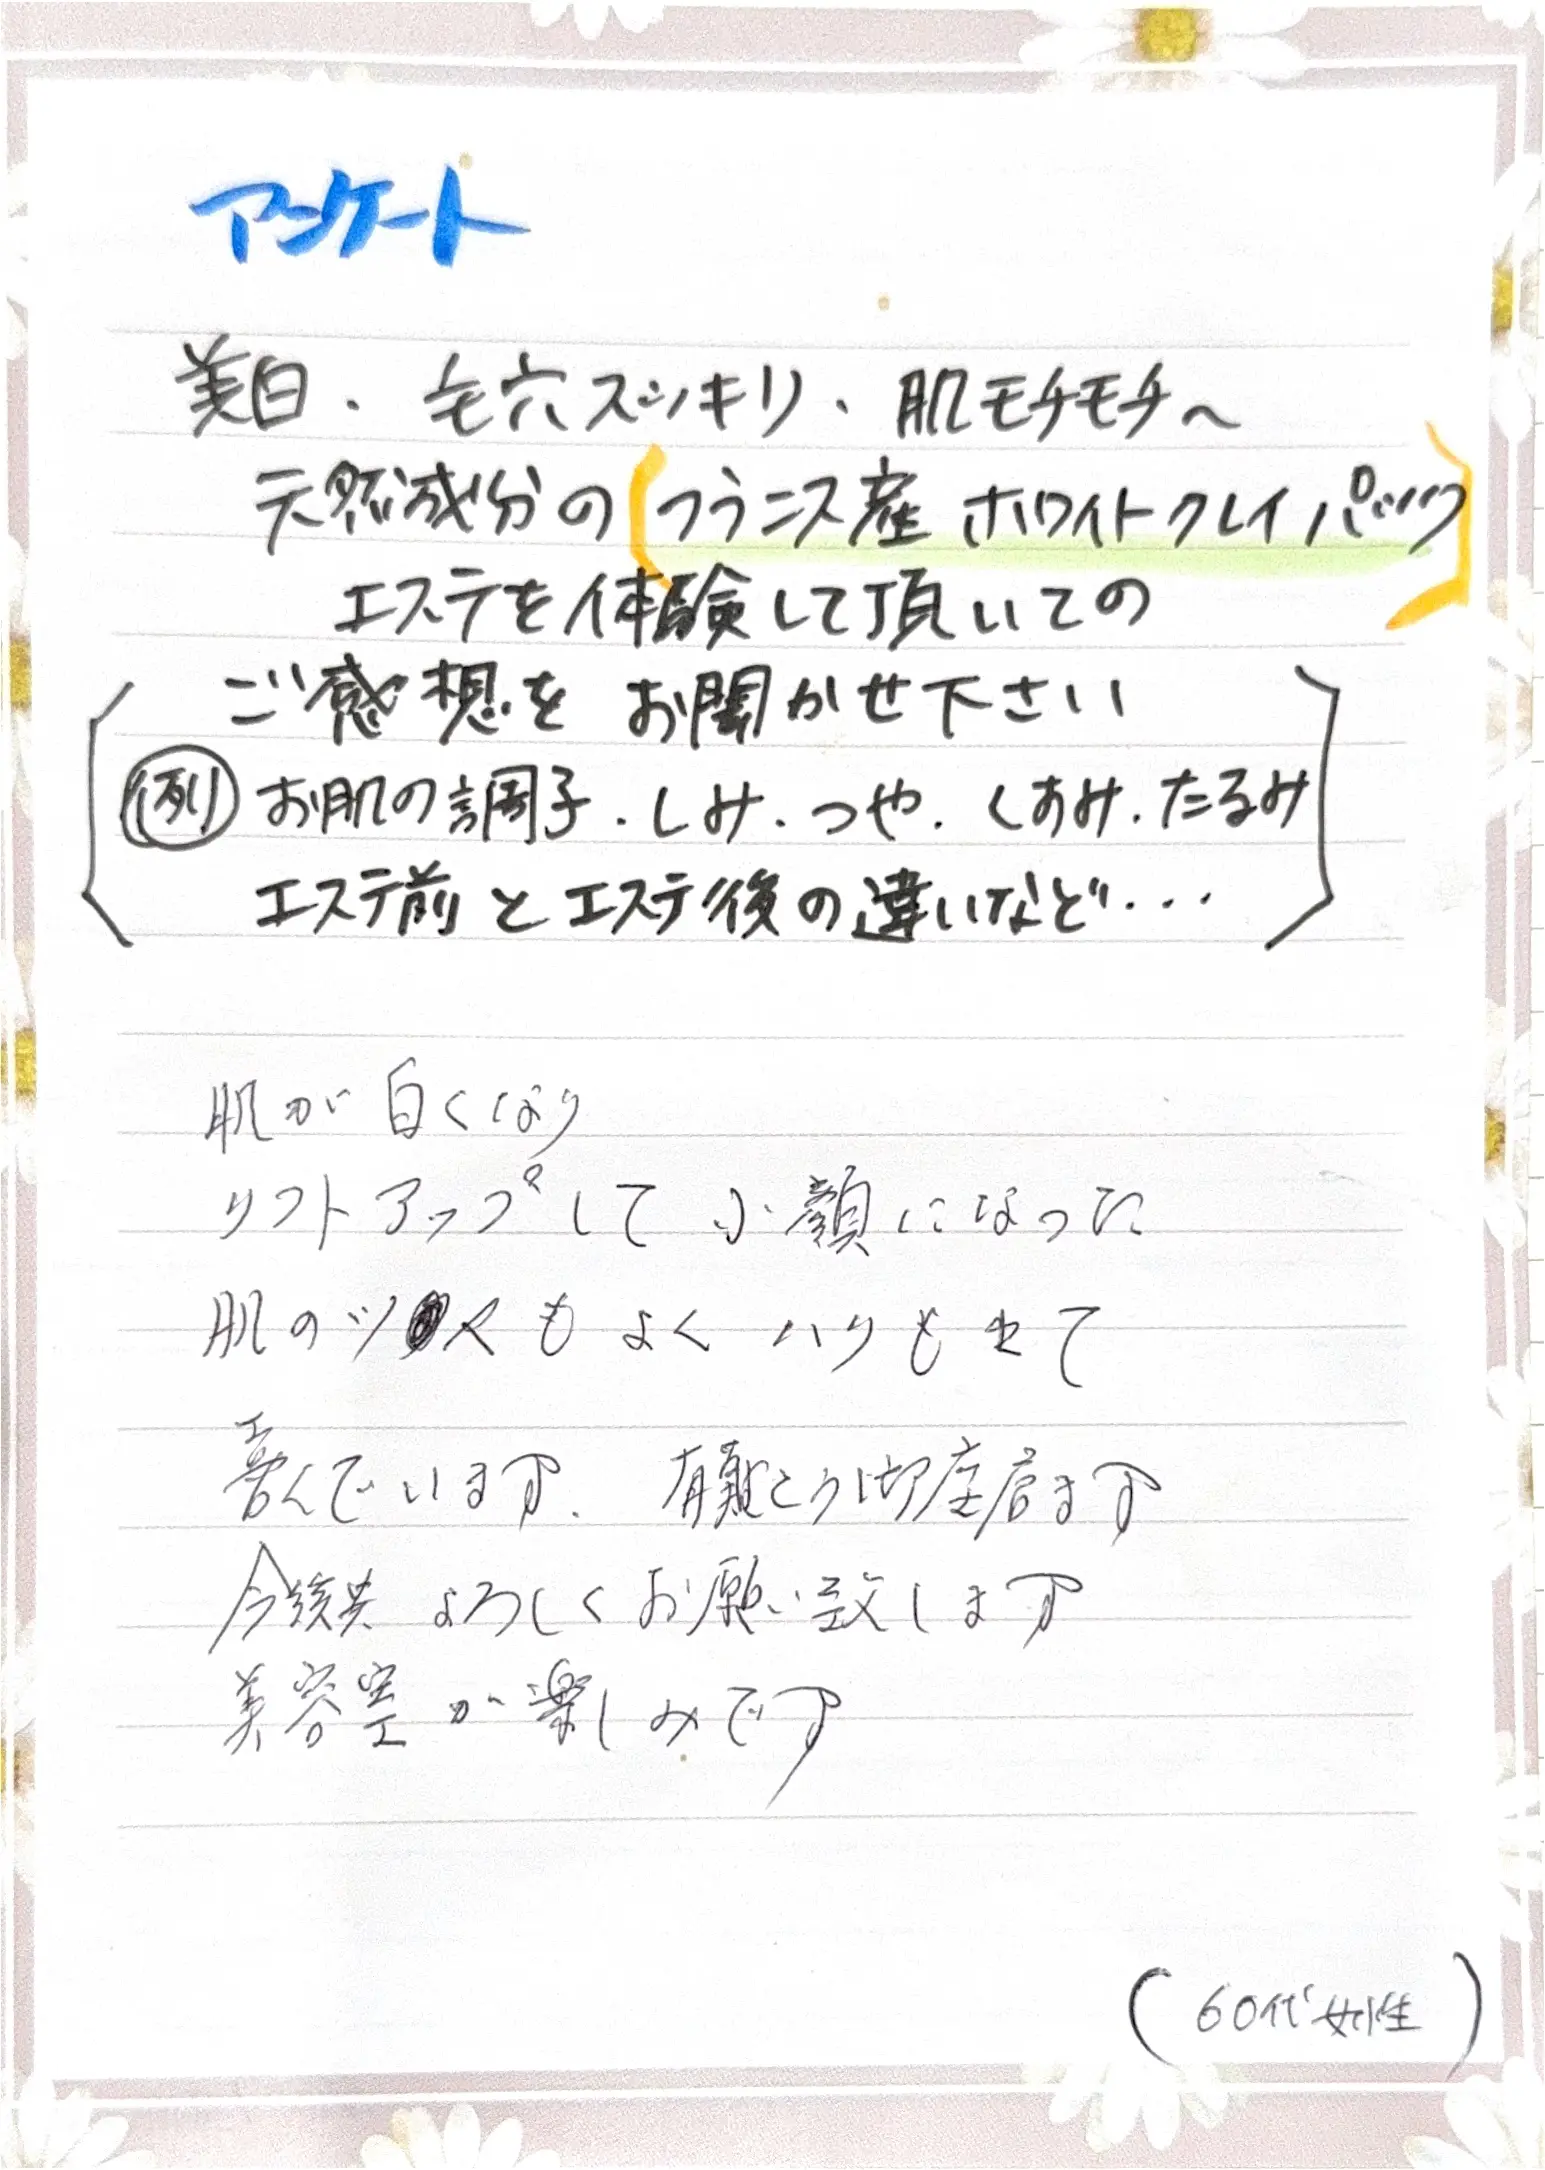 アンケート
美白・毛穴スッキリ、肌モチモチへ
天然成分の(フランス産 ホワイトクレイパック)
エステを体験して頂いての
ご感想をお聞かせ下さい
(例)お肌の調子・しみ・つや・くすみ・たるみ
エステ前とエステ後の違いなど・・・
肌が白くなり
リフトアップして 小顔になった
肌のツヤもよく ハリもでて
喜んでいます. 有難とう御座居ます
今後共 よろしくお願い致します
美容室が楽しみです
(60代女性)